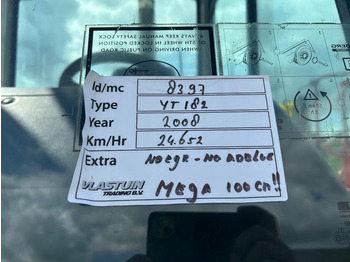 ALWAYS KEEP MANUAL SAFETY LOCK
OF 5TH WHEEL IN LOCKED POSITION
WHEN DRIVING ON PUBLIC ROAD
Id/mc 8397
Type YT 182
Year 2008
Km/Hr 24.652
Extra NO EGR - NO ADBLUE
VLASTUIN
TRADING B.V.
MEGA 100 CM!!